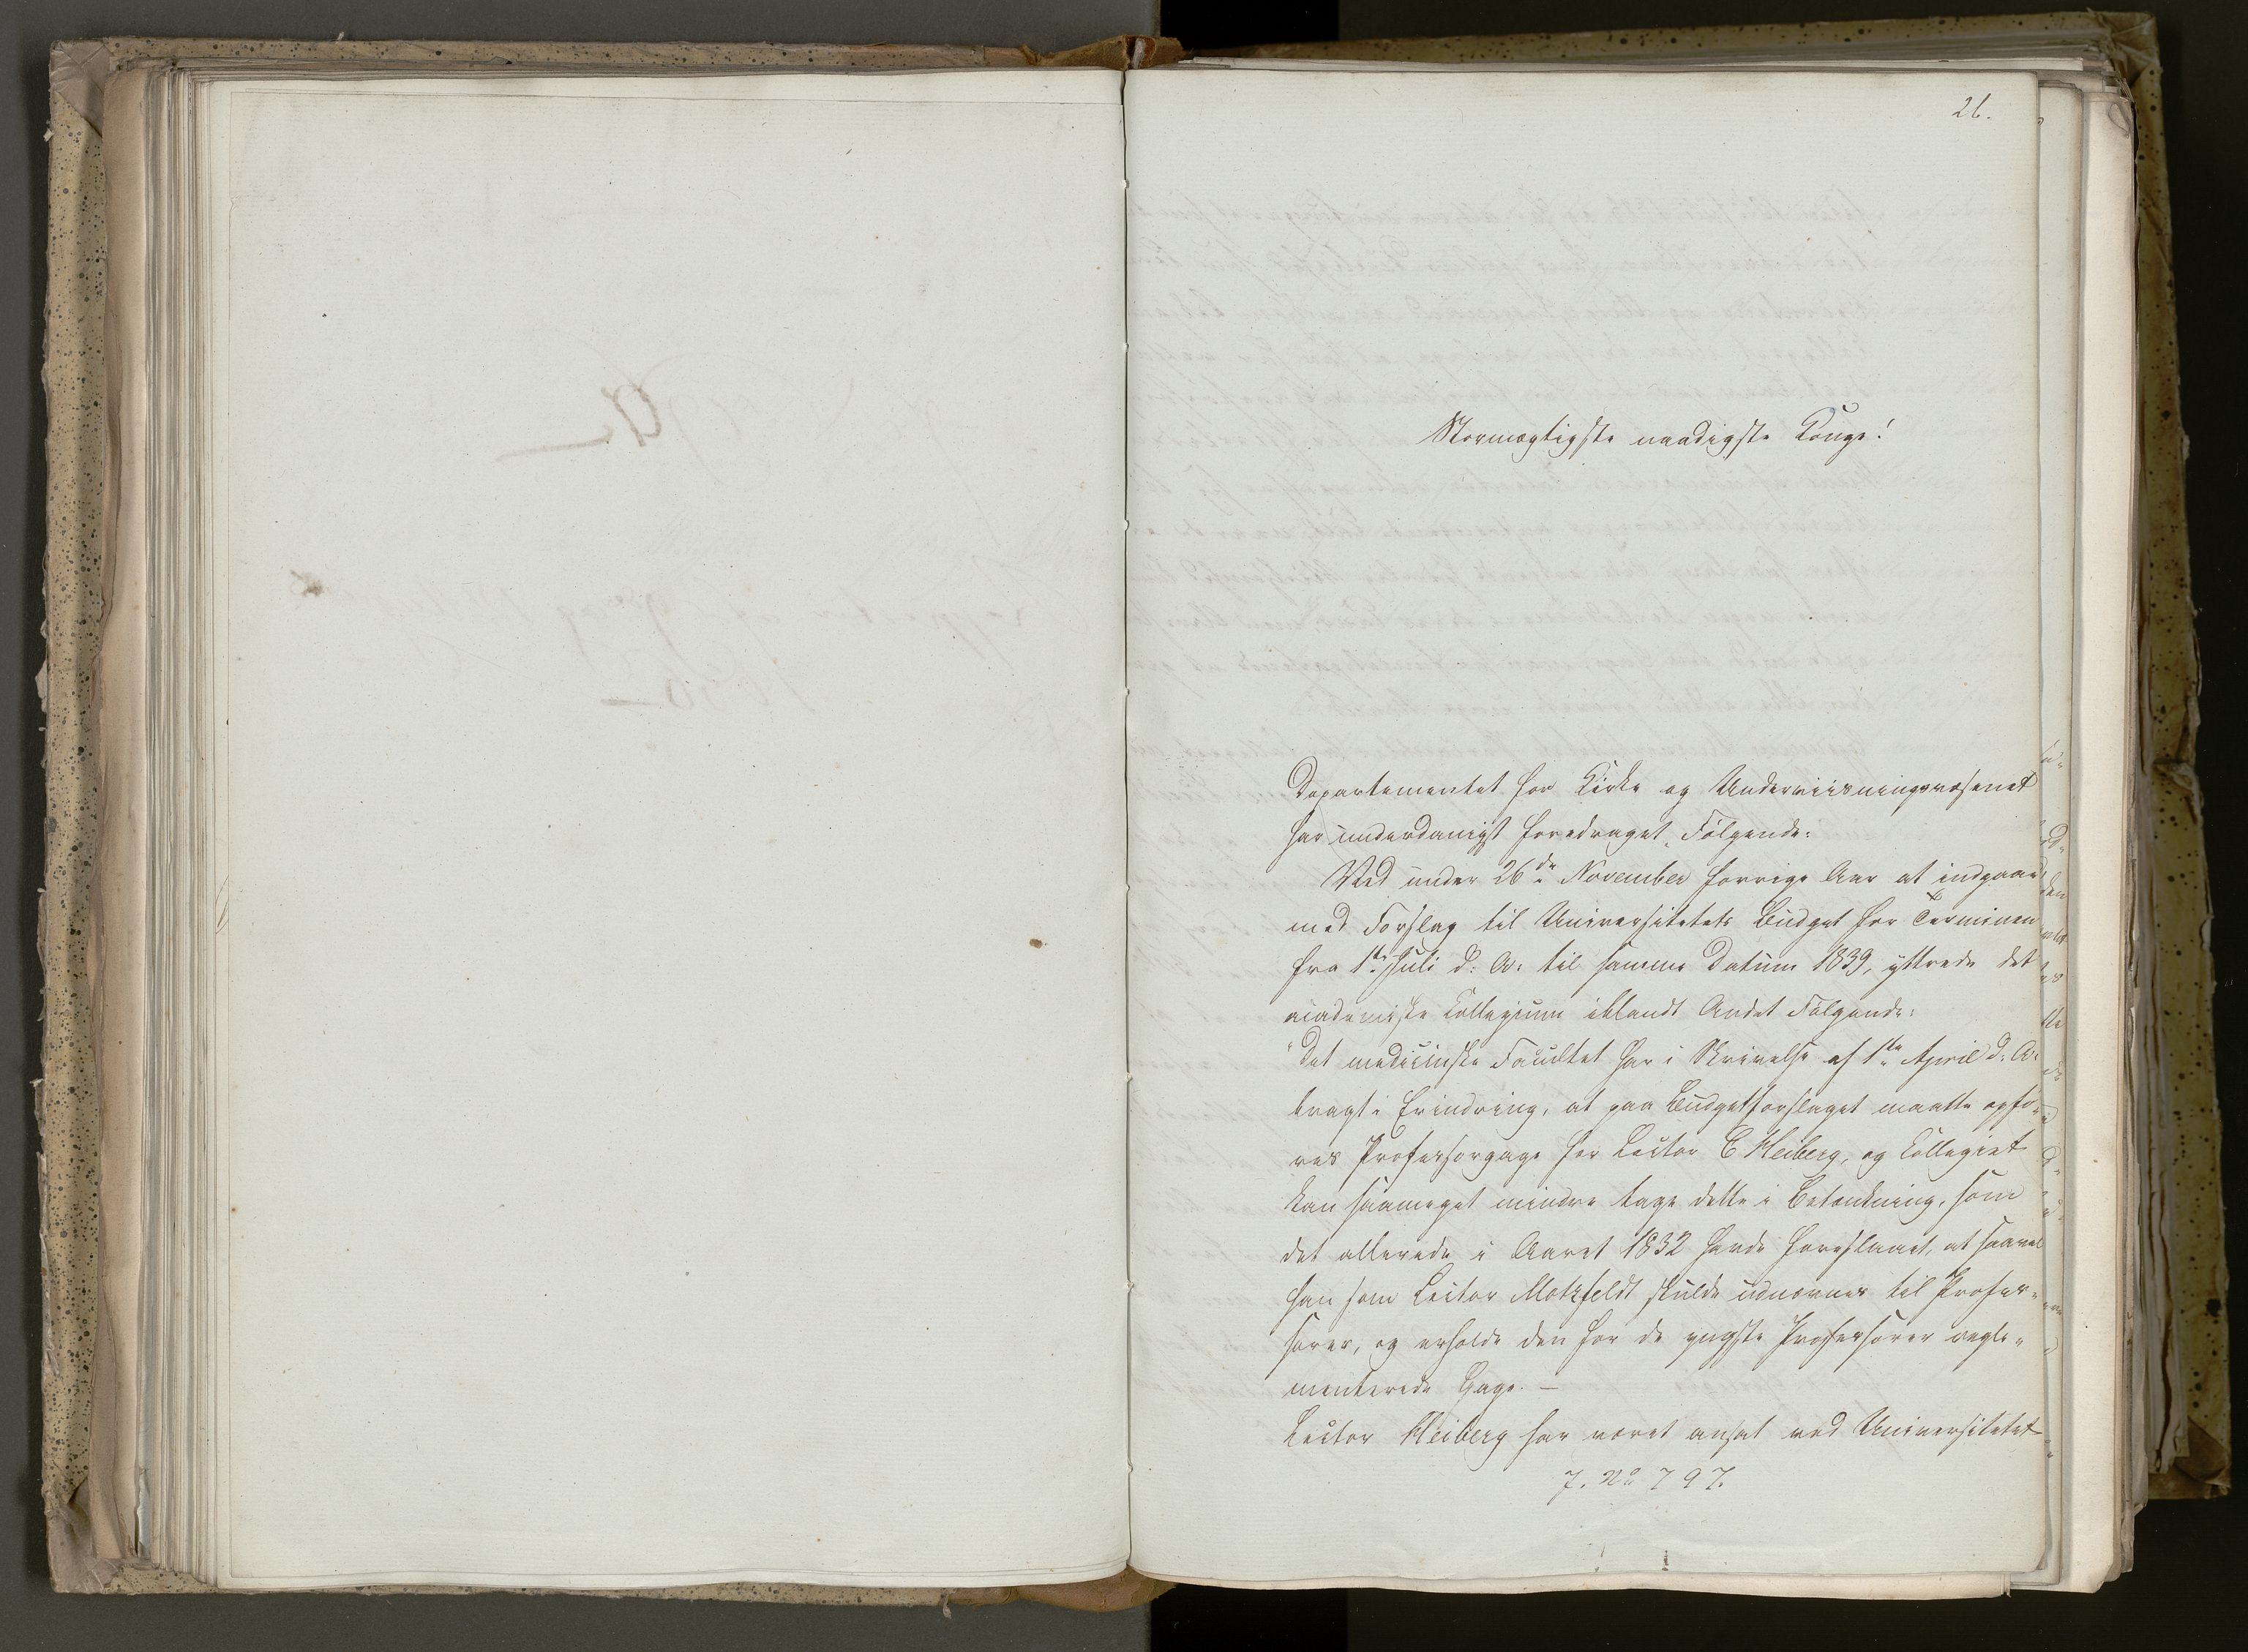 26.
Stormægtigste naadigste Konge!
Departementet for Kirke og Underviisningsvæsenet
har underdanigst foredraget Følgende:
Ved under 26de November forrige Aar at indgaae
med Forslag til Universitetets Budget for Terminen
fra 1te Juli d: A: til samme Datum 1839, yttrede det
academiske Collegium iblandt Andet Følgende:
"Det medicinske Facultet har i Skrivelse af 1te April d: A:
bragt i Erindring, at paa Budgetforslaget maatte opfø-
res Professorgage for Lector C Heiberg, og Collegiet
kan saameget mindre tage dette i Betænkning, som
det allerede i Aaret 1832 havde foreslaaet, at saavel
han som Lector Motzfeldt skulde udnævnes til Profes-
sorer, og erholde den for de yngste Professorer regle-
menterede Gage. —
Lector Heiberg har været ansat ved Universitetet
7. No 797.